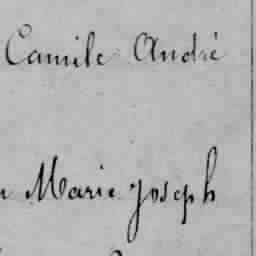 Camile André
Marie Joseph